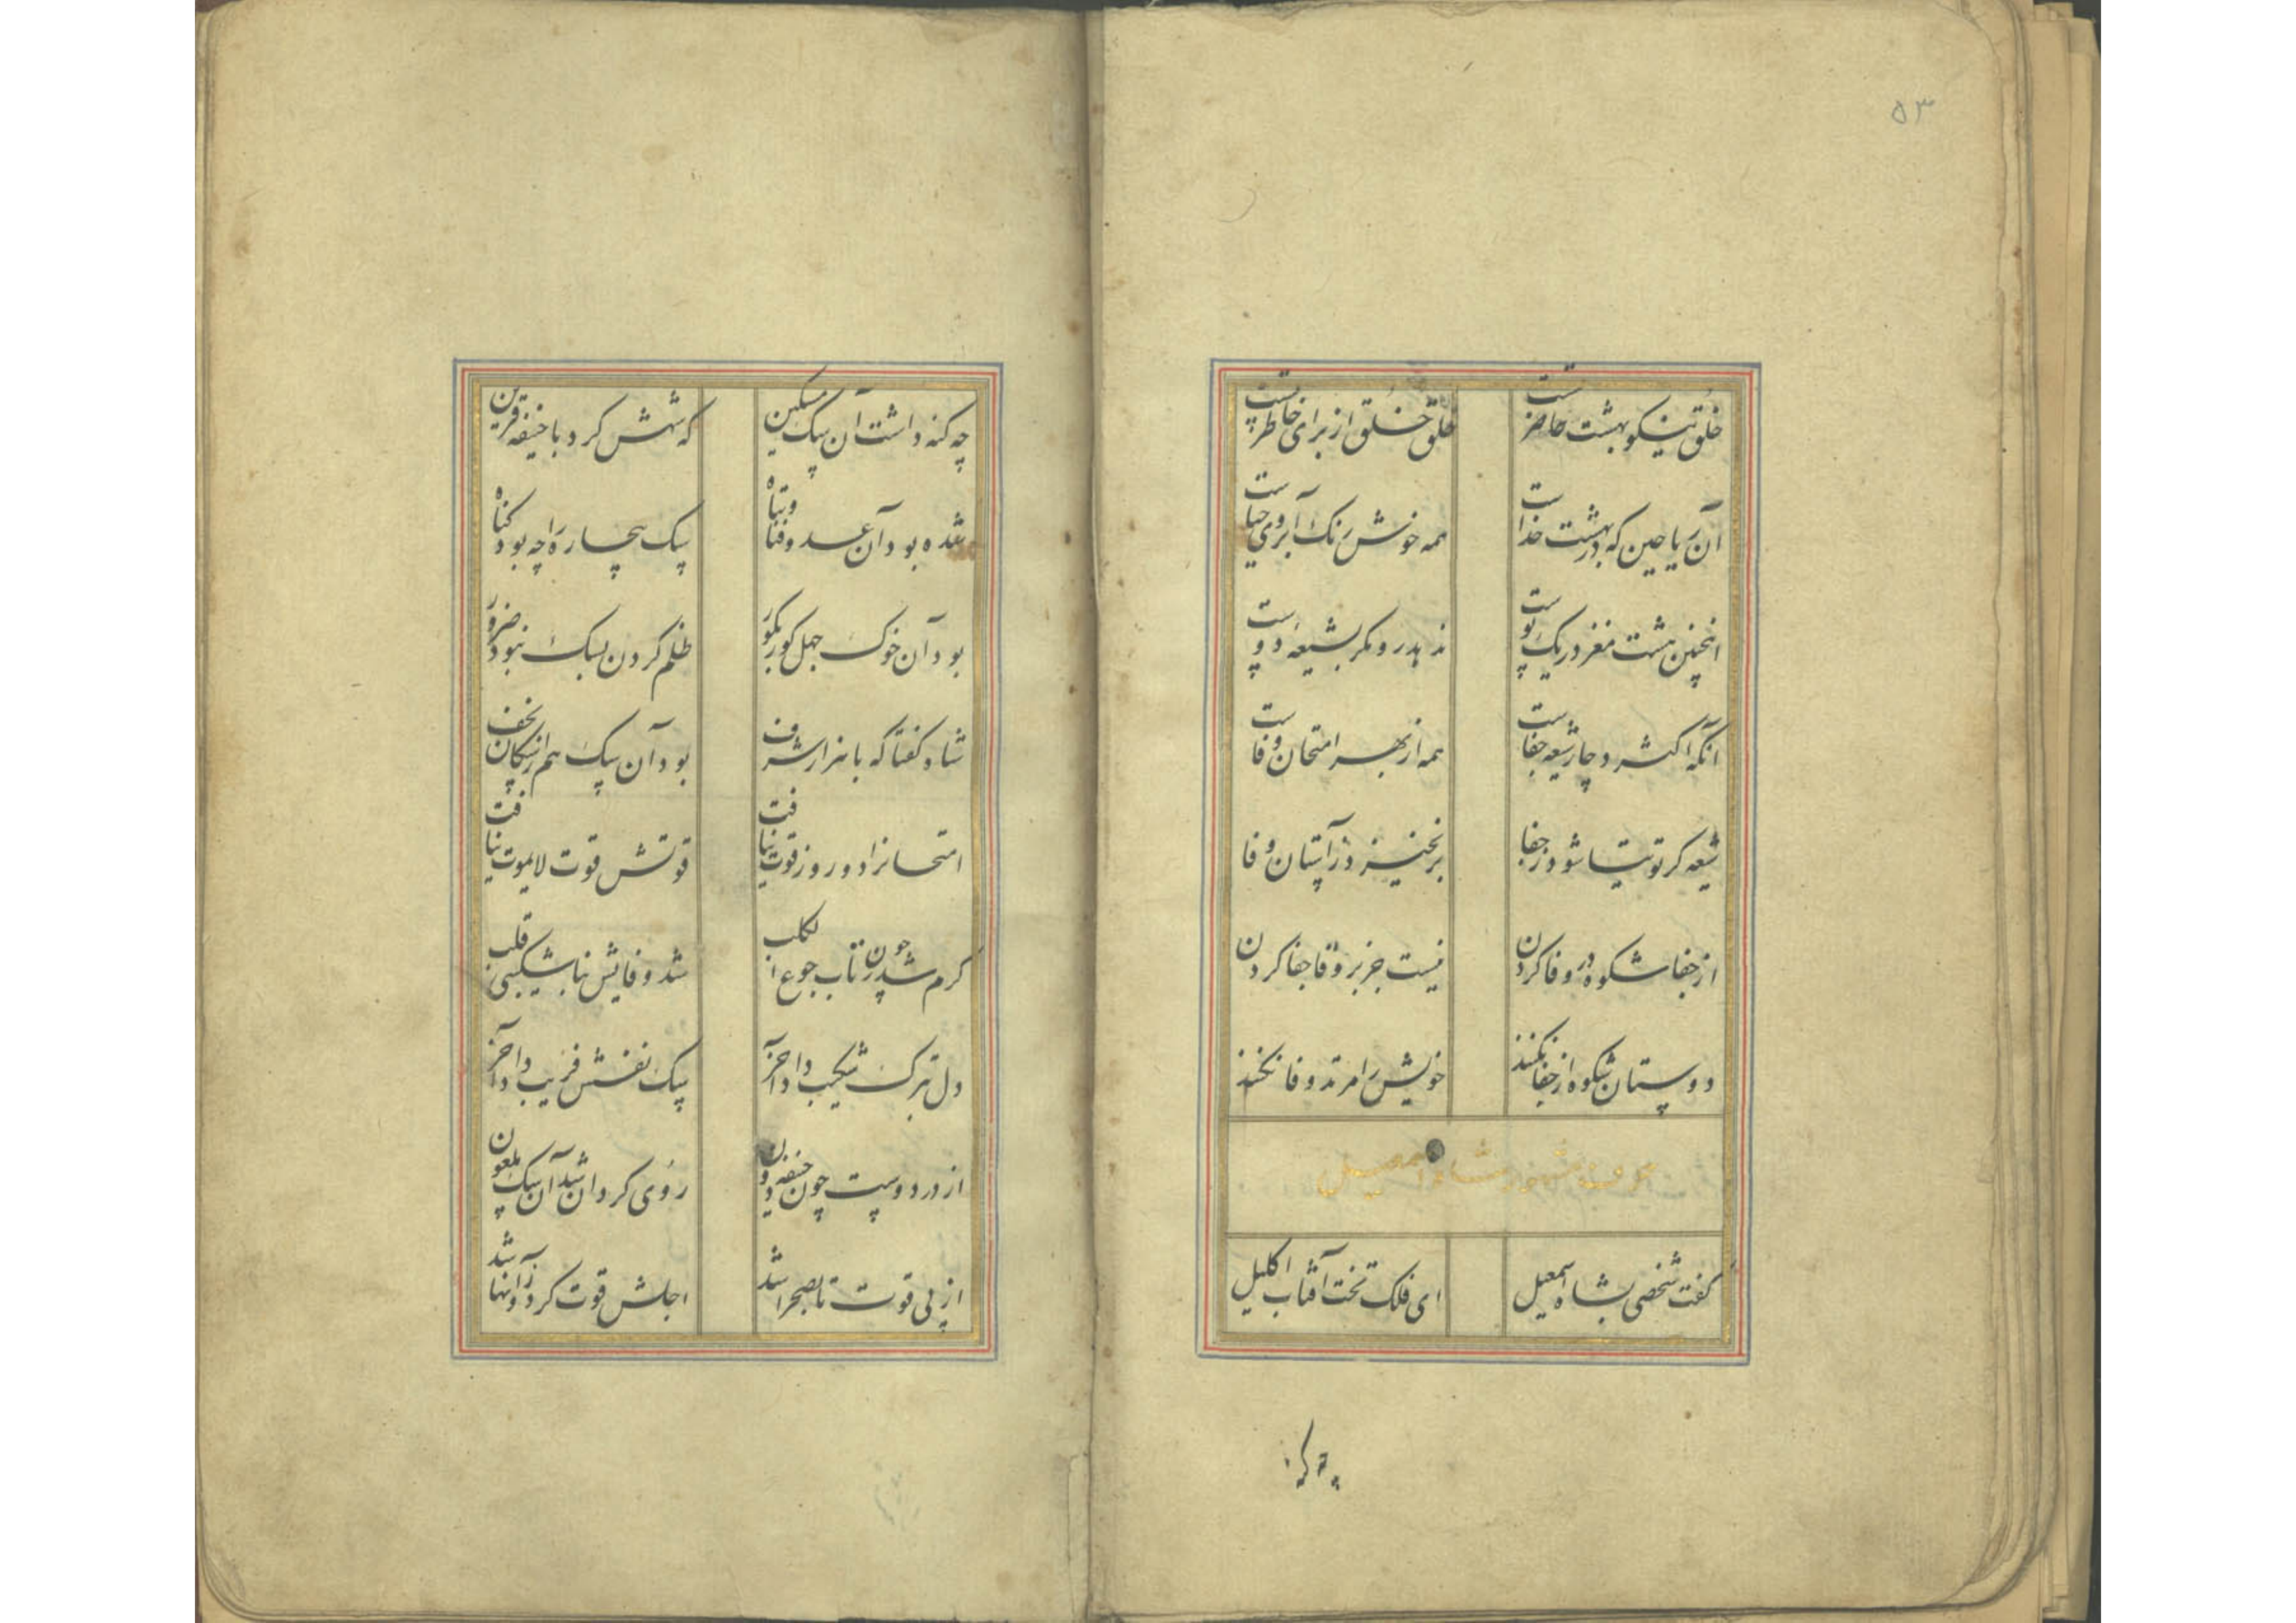 ۵۳
خلق نیکو بهشت حاضر تست
خلق خلق از برای خاطر تست
آن ریاحین که در بهشت خداست
همه خوش رنگ آبروی حیاست
اینچنین هشت مغز در یک پوست
ندهد رو مگر بشیعه دوست
آنکه اکثر دچار شیعه جفاست
همه از بهر امتحان وفاست
شیعه گر توتیا شود ز جفا
برنخیزد ز آستان وفا
از جفا شکوه در وفا کردن
نیست جز بر وفا جفا کردن
دوستان شکوه از جفا نکنند
خویش را مرتد وفا نکنند
شاه اسمعیل
گفت شخصی بشاه اسمعیل
ای فلک تخت آفتاب اکلیل
چه گنه
چه گنه داشت آن سگ مسکین
که شهش کرد با حنیفه قرین
شده بود آن عدو فنا و تباه
سگ بیچاره را چه بود گناه
بود آن خوک جهل کور بگور
ظلم کردن بسگ نبود ضرور
شاه گفتا که با هزار شرف
بود آن سگ هم از سگان نجف
امتحانرا دو روز قوت نیافت
قوتش قوت لایموت نیافت
گرم شد چون ز تاب جوع الکلب
شد وفایش بناشکیبی قلب
دل بترک شکیب داد آخر
سگ نفسش فریب داد آخر
از در دوست چون حنیفه دون
روی گردان شد آن سگ ملعون
از پی قوت تا بصحرا شد
اجلش قوت کرد و زانها شد